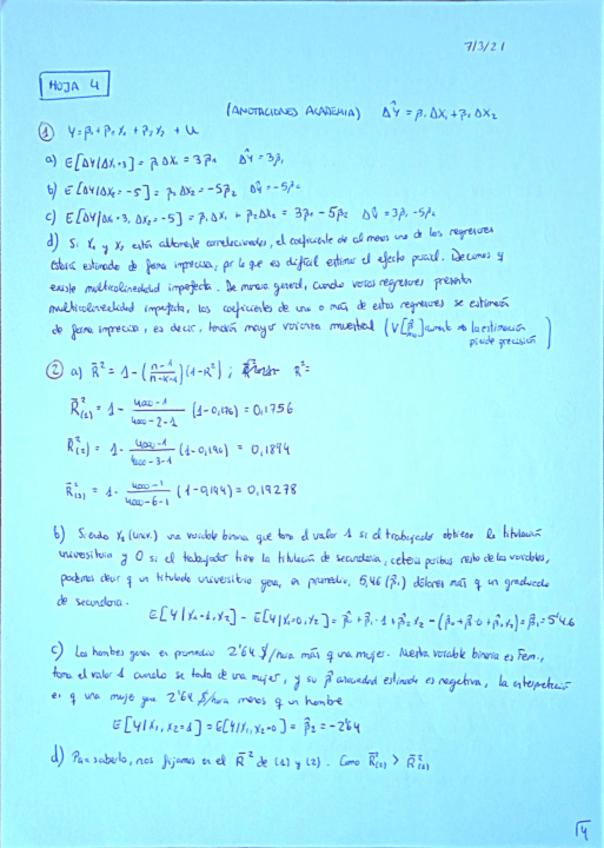 7/3/21
HOJA 4
(ANOTACIONES ACADEMIA) ΔŶ = β₁ΔX₁ + β₂ΔX₂
① Y = β₀ + β₁X₁ + β₂X₂ + U
a) E[ΔY/ΔX₁=3] = β₁ΔX₁ = 3β₁ ΔŶ = 3β₁
b) E[ΔY/ΔX₂=-5] = β₂ΔX₂ = -5β₂ ΔŶ = -5β₂
c) E[ΔY/ΔX₁=3, ΔX₂=-5] = β₁ΔX₁ + β₂ΔX₂ = 3β₁ - 5β₂ ΔŶ = 3β₁ - 5β₂
d) Si X₁ y X₂ están altamente correlacionados, el coeficiente de al menos uno de los regresores
estará estimado de forma imprecisa, por lo que es difícil estimar el efecto parcial. Decimos q
existe multicolinealidad imperfecta. De manera general, cuando varios regresores presentan
multicolinealidad imperfecta, los coeficientes de uno o más de estos regresores se estimará
de forma imprecisa, es decir, tendrá mayor varianza muestral (V[β̂] aumenta → la estimación
pierde precisión)
② a) R̄² = 1 - (n-1/n-k-1)(1-R²) ; R²=
R̄²(1) = 1 - 4000-1/4000-2-1 (1-0,176) = 0,1756
R̄²(2) = 1 - 4000-1/4000-3-1 (1-0,190) = 0,1894
R̄²(3) = 1 - 4000-1/4000-6-1 (1-0,194) = 0,19278
b) Siendo X₁ (Univ.) una variable binaria que toma el valor 1 si el trabajador obtiene la titulación
universitaria y 0 si el trabajador tiene la titulación de secundaria, ceteris paribus resto de las variables,
podemos decir q un titulado universitario gana, en promedio, 5,46 (β̂₁) dólares más q un graduado
de secundaria.
E[Y|X₁=1,X₂] - E[Y|X₁=0,X₂] = β̂₀ + β̂₁·1 + β̂₂X₂ - (β̂₀ + β̂₁·0 + β̂₂X₂) = β̂₁ = 5'46
c) Los hombres ganan en promedio 2'64 $/hora más q una mujer. Nuestra variable binaria es Fem.,
toma el valor 1 cuando se trata de una mujer, y su β̂ asociado estimado es negativa, la interpretación
es q una mujer gana 2'64 $/hora menos q un hombre
E[Y|X₁,X₂=1] - E[Y|X₁,X₂=0] = β̂₂ = -2'64
d) Para saberlo, nos fijamos en el R̄² de (1) y (2). Como R̄²(2) > R̄²(1)
4